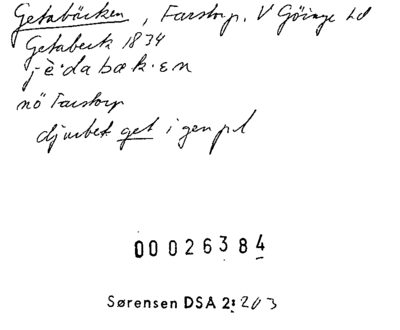 Getabäcken, Farstorp, V Göinge hd
Getabeck 1834
jè·dabæk·ɛn
nö Farstorp
djurbet. get i gen pl
00026384
Sørensen DSA 2: 203